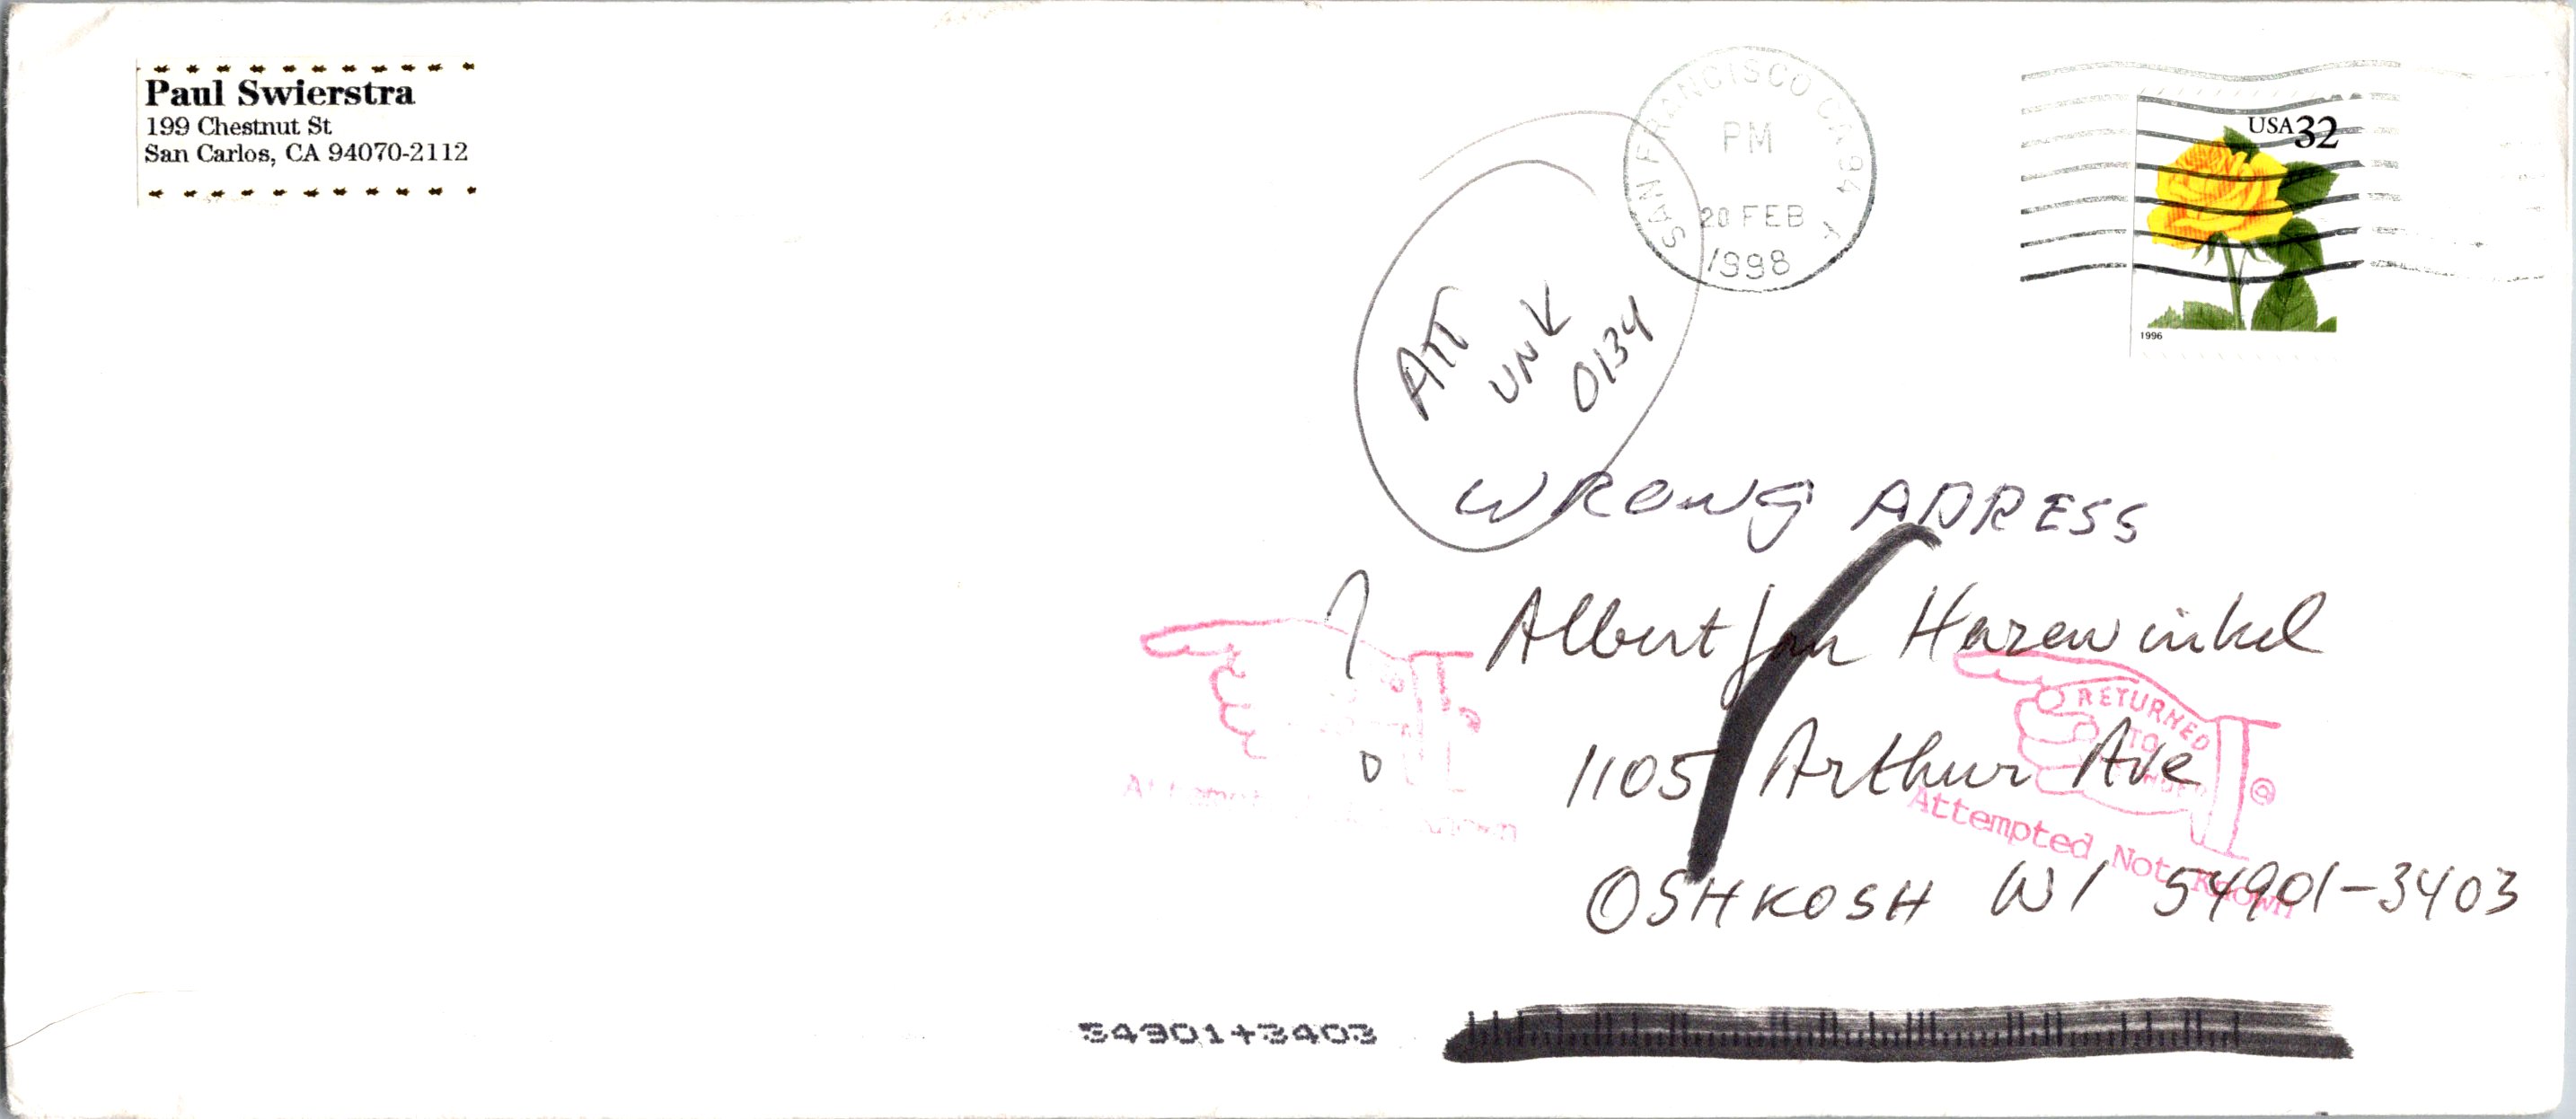 Paul Swierstra
199 Chestnut St
San Carlos, CA 94070-2112
SAN FRANCISCO CA 94
PM
20 FEB
1998
USA 32
1996
ATT
UNK
0134
WRONG ADRESS
?
Albert Jan Hazewinkel
1105 Arthur Ave
OSHKOSH WI 54901-3403
RETURNED
TO
Attempted Not Known
54901+3403